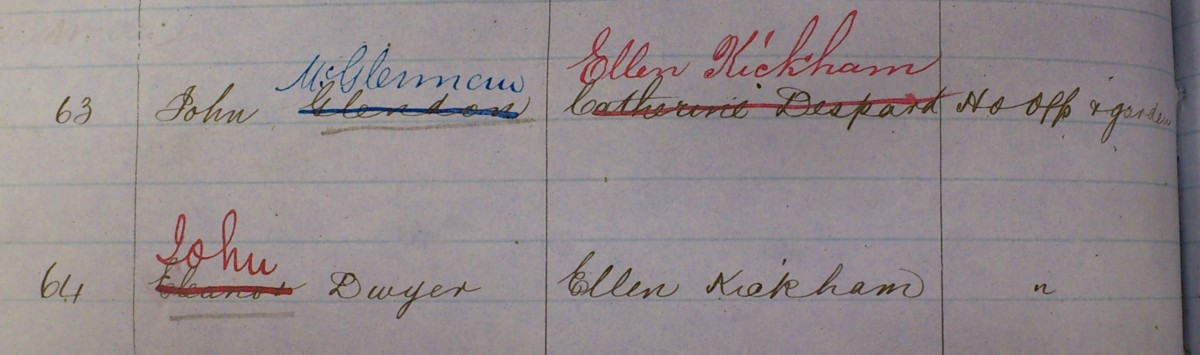 McGlennan Ellen Kickham
63 John Glendon Catherine Despard Ho Off & garden
John
64 Eleanor Dwyer Ellen Kickham "